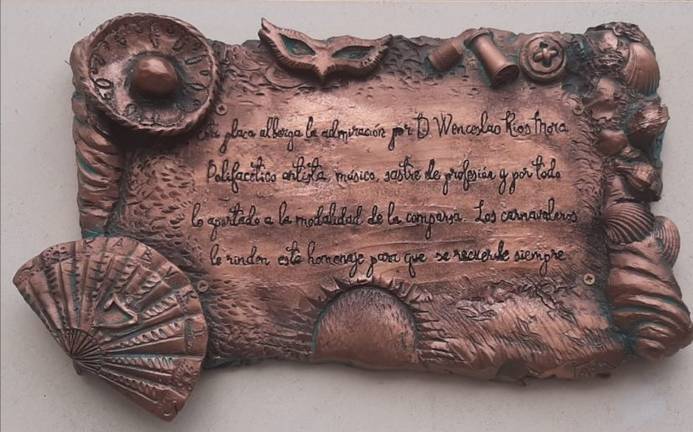 Esta placa alberga la admiración por D Wenceslao Ríos Mora
Polifacético artista, músico, sastre de profesión y por todo
lo aportado a la modalidad de la comparsa. Los carnavaleros
le rinden este homenaje para que se recuerde siempre